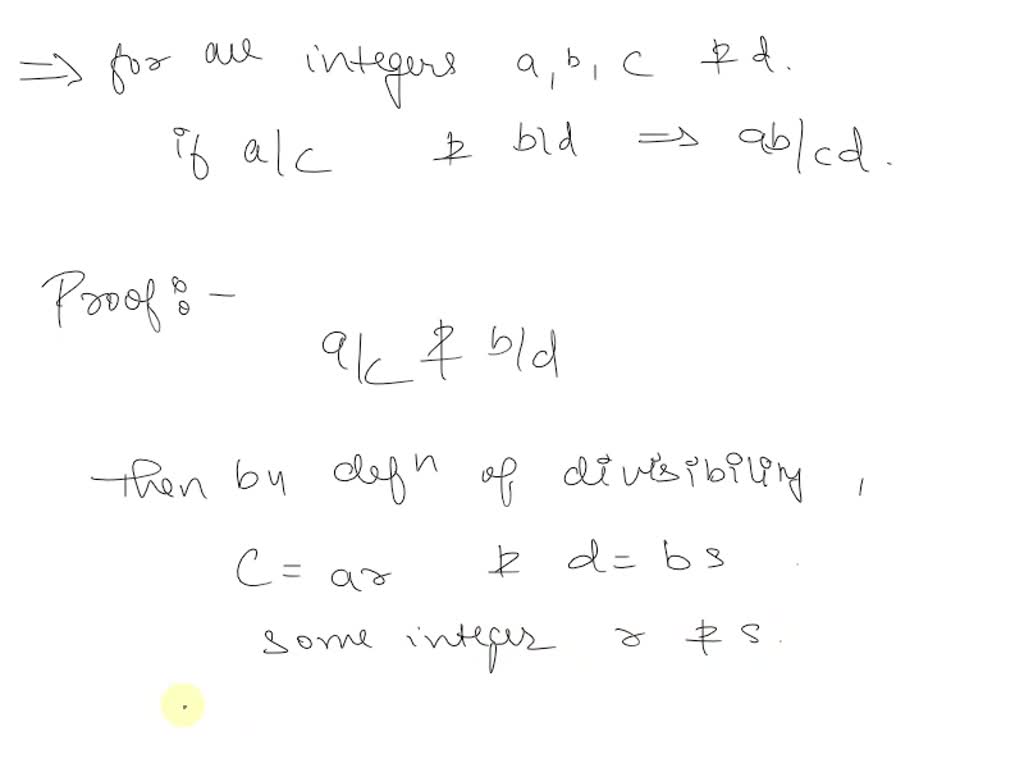 ⇒ for all integers a, b, c & d.
if a|c & b|d ⇒ ab|cd.
Proof:-
a|c & b|d
then by defⁿ of divisibility,
C = ar & d = bs
some integer r & s.